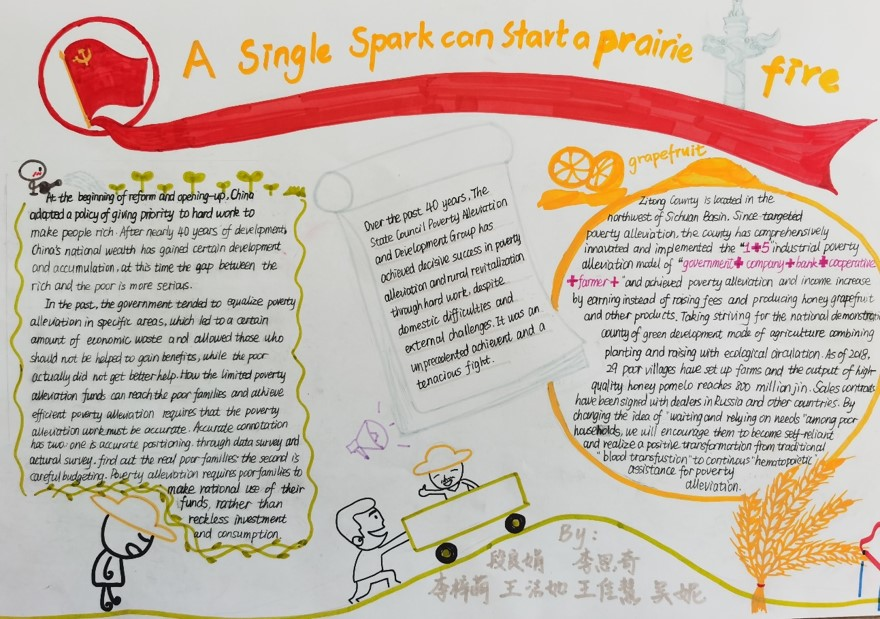 A Single Spark can Start a prairie
fire
At the beginning of reform and opening-up, China
adapted a policy of giving priority to hard work to
make people rich. After nearly 40 years of development,
China's national wealth has gained certain development
and accumulation, at this time the gap between the
rich and the poor is more serious.
In the past, the government tended to equalize poverty
alleviation in specific areas, which led to a certain
amount of economic waste and allowed those who
should not be helped to gain benefits, while the poor
actually did not get better help. How the limited poverty
alleviation funds can reach the poor families and achieve
efficient poverty alleviation requires that the poverty
alleviation work must be accurate. Accurate connotation
has two: one is accurate positioning, through data survey and
actural survey, find out the real poor families: the second is
careful budgeting. Poverty alleviation requires poor families to
make rational use of their
funds, rather than
reckless investment
and consumption.
Over the past 40 years, The
State Council Poverty Alleviation
and Development Group has
achieved decisive success in poverty
alleviation and rural revitalization
through hard work, despite
domestic difficulties and
external challenges. It was an
unprecedented achievent and a
tenacious fight.
grapefruit
Zitong County is located in the
northwest of Sichuan Basin. Since targeted
poverty alleviation, the county has comprehensively
innovated and implemented the "1+5" industrial poverty
alleviation model of "government+company+bank+cooperative
+farmer+" and achieved poverty alleviation and income increase
by earning instead of raising fees and producing honey grapefruit
and other products. Taking striving for the national demonstration
county of green development mode of agriculture combining
planting and raising with ecological circulation. As of 2018,
29 poor villages have set up farms and the output of high-
quality honey pomelo reaches 800 million jin. Sales contracts
have been signed with dealers in Russia and other countries. By
changing the idea of "waiting and relying on needs" among poor
households, we will encourage them to become self-reliant
and realize a positive transformation from traditional
"blood transfustion" to continous "hematopoietic"
assistance for poverty
alleviation.
By:
段良娟 李思奇
李梓萌 王洁如 王佳慧 吴妮